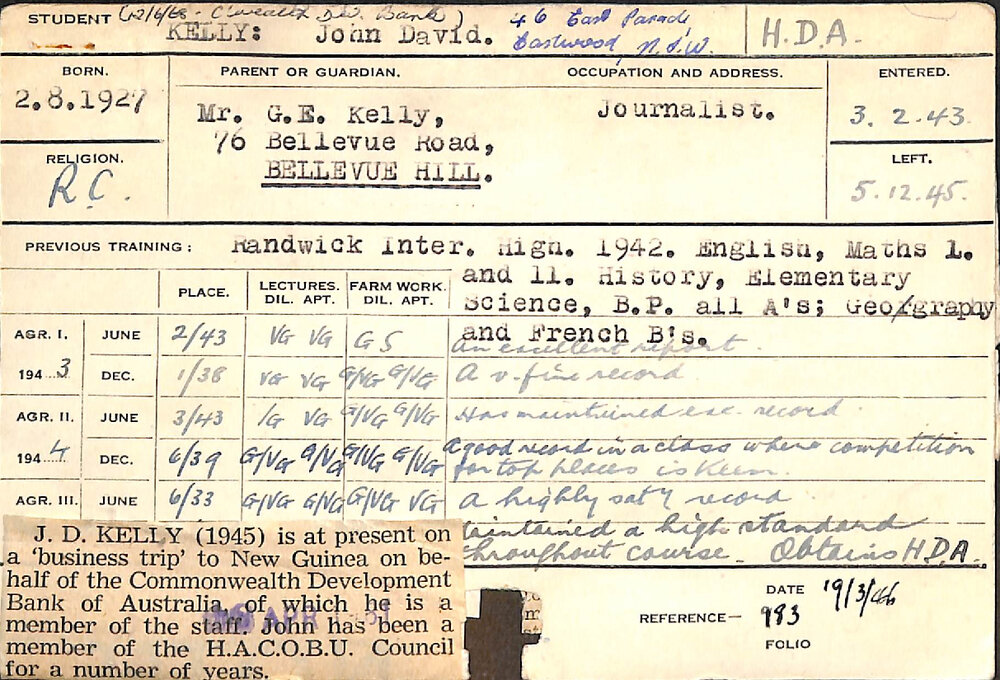 (12/6/68 - C'wealth Dev. Bank)
STUDENT KELLY: John David.
46 East Parade
Eastwood N.S.W.
H.D.A.
BORN.
2.8.1927
PARENT OR GUARDIAN.
OCCUPATION AND ADDRESS.
Mr. G.E. Kelly, Journalist.
76 Bellevue Road,
BELLEVUE HILL.
ENTERED.
3.2.43.
RELIGION.
R.C.
LEFT.
5.12.45.
PREVIOUS TRAINING: Randwick Inter. High. 1942. English, Maths 1.
and 11. History, Elementary
Science, B.P. all A's; Geo/graphy
and French B's.
PLACE. LECTURES. DIL. APT. FARM WORK. DIL. APT.
AGR. I. JUNE 2/43 VG VG G S An excellent report.
1943 DEC. 1/38 VG VG G/VG G/VG A v. fine record
AGR. II. JUNE 3/43 /G VG G/VG G/VG Has maintained exc. record.
1944 DEC. 6/39 G/VG G/VG G/VG G/VG A good record in a class where competition
for top places is keen.
AGR. III. JUNE 6/33 G/VG G/VG G/VG VG A highly saty record
aintained a high standard
throughout course. Obtains H.D.A.
J. D. KELLY (1945) is at present on
a 'business trip' to New Guinea on be-
half of the Commonwealth Development
Bank of Australia, of which he is a
member of the staff. John has been a
member of the H.A.C.O.B.U. Council
for a number of years.
APR
DATE 19/3/46
REFERENCE— 983
FOLIO